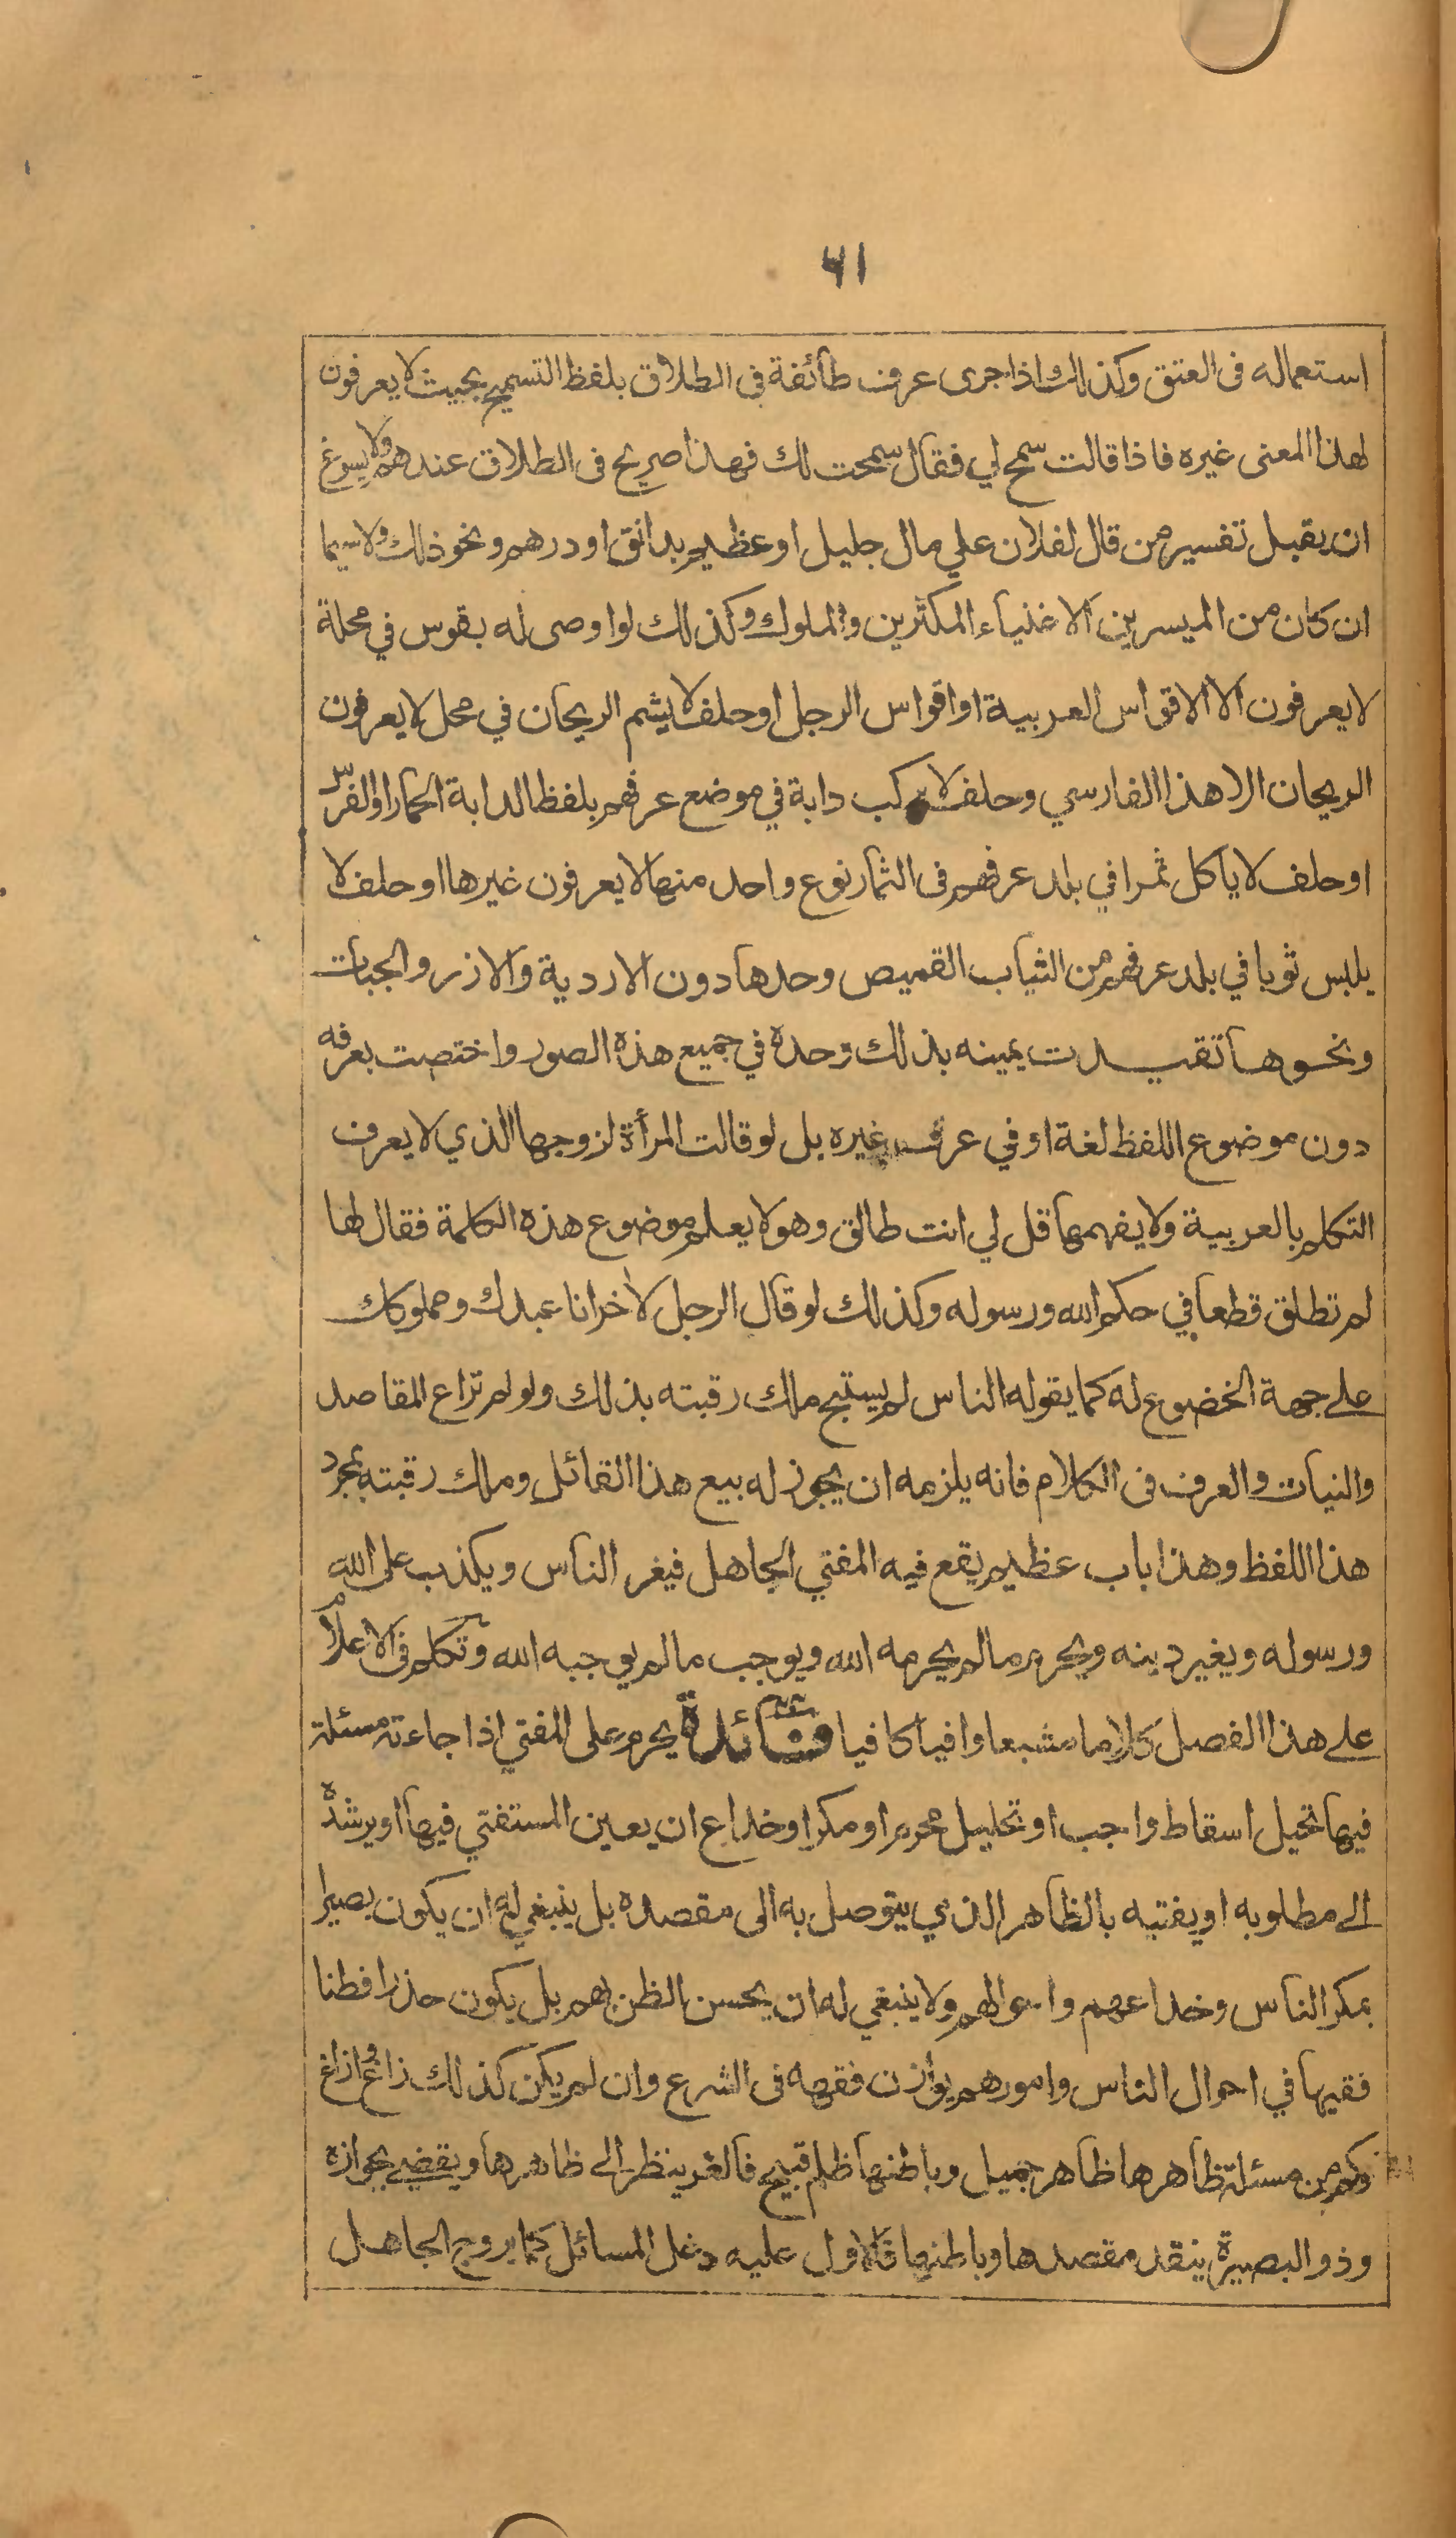 ٦١
استعماله فى العتق وكذلك اذا جرى عرف طائفة فى الطلاق بلفظ التسميح بحيث لا يعرفون
لهذا المعنى غيره فاذا قالت سمح لي فقال سمحت لك فهذا صريح فى الطلاق عندهم ولا يسوغ
ان يقبل تفسير من قال لفلان علي مال جليل او عظيم بدانق او درهم ونحو ذلك ولا سيما
ان كان من الميسرين الاغنياء المكثرين والملوك وكذلك لو اوصى له بقوس في محلة
لا يعرفون الا الاقواس العربية او اقواس الرجل او حلف لا يشم الريحان في محل لا يعرفون
الريحان الا هذا الفارسي وحلف لا يركب دابة في موضع عرفهم بلفظ الدابة الحمار او الفرس
او حلف لا ياكل ثمرا في بلد عرفهم فى الثمار نوع واحد منها لا يعرفون غيرها او حلف لا
يلبس ثوبا في بلد عرفهم من الثياب القميص وحدها دون الاردية والازر والجبات
ونحوها تقيدت يمينه بذلك وحده في جميع هذه الصور واختصت بعرفه
دون موضوع اللفظ لغة او في عرف غيره بل لو قالت المرأة لزوجها الذي لا يعرف
التكلم بالعربية ولا يفهمها قل لي انت طالق وهو لا يعلم موضوع هذه الكلمة فقال لها
لم تطلق قطعا في حكم الله ورسوله وكذلك لو قال الرجل لاخر انا عبدك ومملوكك
على جهة الخضوع له كما يقوله الناس لم يستبح ملك رقبته بذلك ولو لم تراع المقاصد
والنيات والعرف فى الكلام فانه يلزمه ان يجوز له بيع هذا القائل وملك رقبته بمجرد
هذا اللفظ وهذا باب عظيم يقع فيه المفتي الجاهل فيغر الناس ويكذب على الله
ورسوله ويغير دينه ويحرم ما لم يحرمه الله ويوجب ما لم يوجبه الله وتكلم فى الاعلام
على هذا الفصل كلاما مشبعا وافيا كافيا فائدة يحرم على المفتي اذا جاءته مسئلة
فيها تحيل اسقاط واجب او تحليل محرم او مكر او خداع ان يعين المستفتي فيها او يرشده
الى مطلوبه او يفتيه بالظاهر الذي يتوصل به الى مقصده بل ينبغي له ان يكون بصيرا
بمكر الناس وخداعهم واحوالهم ولا ينبغي له ان يحسن الظن بهم بل يكون حذرا فطنا
فقيها في احوال الناس وامورهم يوازن فقهه فى الشرع وان لم يكن كذلك زاغ وازاغ
وكم من مسئلة ظاهرها ظاهر جميل وباطنها ظلم قبيح فالغر ينظر الى ظاهرها ويقضي بجوازه
وذو البصيرة ينقد مقصدها وباطنها فالاول عليه دغل المسائل كما يروج الجاهل